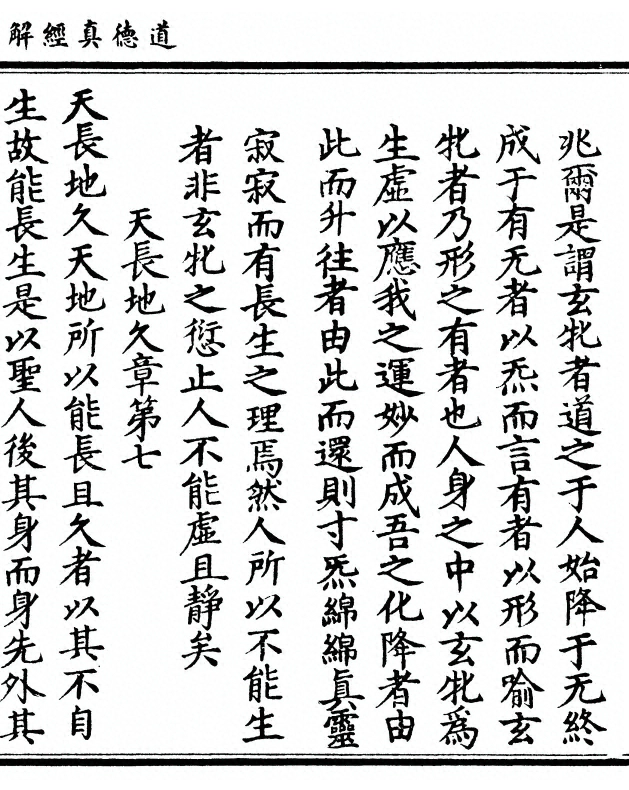 道德真經解
兆爾是謂玄牝者道之于人始降于无終
成于有无者以炁而言有者以形而喻玄
牝者乃形之有者也人身之中以玄牝爲
生虛以應我之運妙而成吾之化降者由
此而升往者由此而還則寸炁綿綿眞靈
寂寂而有長生之理焉然人所以不能生
者非玄牝之愆止人不能虛且靜矣
天長地久章第七
天長地久天地所以能長且久者以其不自
生故能長生是以聖人後其身而身先外其